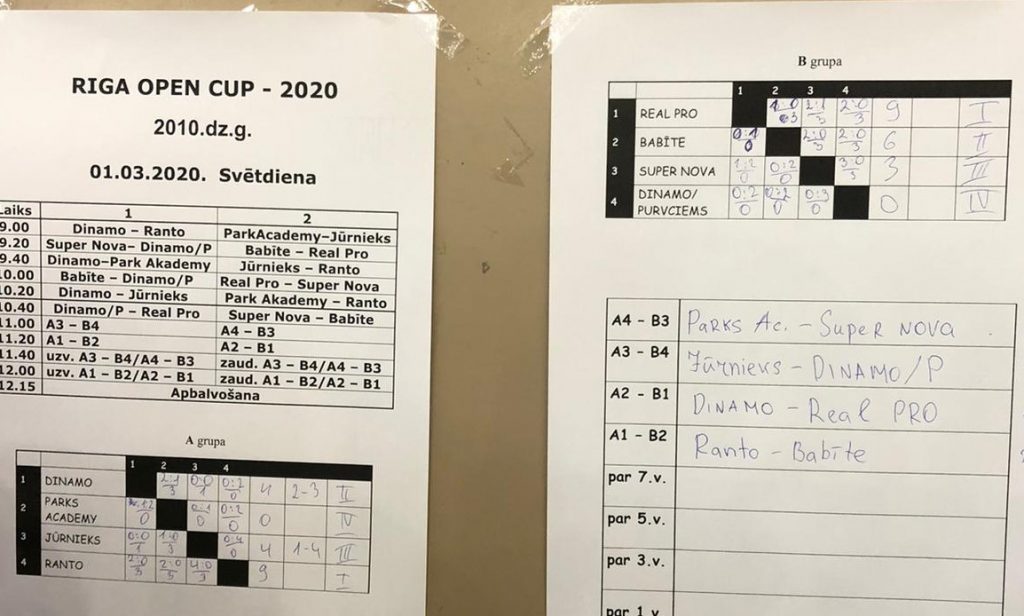 RIGA OPEN CUP - 2020
2010.dz.g.
01.03.2020. Svētdiena
Laiks 1 2
9.00 Dinamo – Ranto ParkAcademy–Jūrnieks
9.20 Super Nova– Dinamo/P Babīte – Real Pro
9.40 Dinamo–Park Akademy Jūrnieks – Ranto
10.00 Babīte – Dinamo/P Real Pro – Super Nova
10.20 Dinamo – Jūrnieks Park Akademy – Ranto
10.40 Dinamo/P – Real Pro Super Nova – Babīte
11.00 A3 – B4 A4 – B3
11.20 A1 – B2 A2 – B1
11.40 uzv. A3 – B4/A4 – B3 zaud. A3 – B4/A4 – B3
12.00 uzv. A1 – B2/A2 – B1 zaud. A1 – B2/A2 – B1
12.15 Apbalvošana
A grupa
1 2 3 4
1 DINAMO 2:1 3 0:0 1 0:2 0 4 2-3 II
2 PARKS ACADEMY 1:2 0 0:1 0 0:2 0 0 IV
3 JŪRNIEKS 0:0 1 1:0 3 0:4 0 4 1-4 III
4 RANTO 2:0 3 2:0 3 4:0 3 9 I
B grupa
1 2 3 4
1 REAL PRO 1:0 3 2:1 3 2:0 3 9 I
2 BABĪTE 0:1 0 2:0 3 2:0 3 6 II
3 SUPER NOVA 1:2 0 0:2 0 3:0 3 3 III
4 DINAMO/ PURVCIEMS 0:2 0 0:2 0 0:3 0 0 IV
A4 – B3 PARKS Ac. – Super NOVA
A3 – B4 Jūrnieks – DINAMO/P
A2 – B1 DINAMO – Real PRO
A1 – B2 Ranto – Babīte
par 7.v.
par 5.v.
par 3.v.
par 1.v